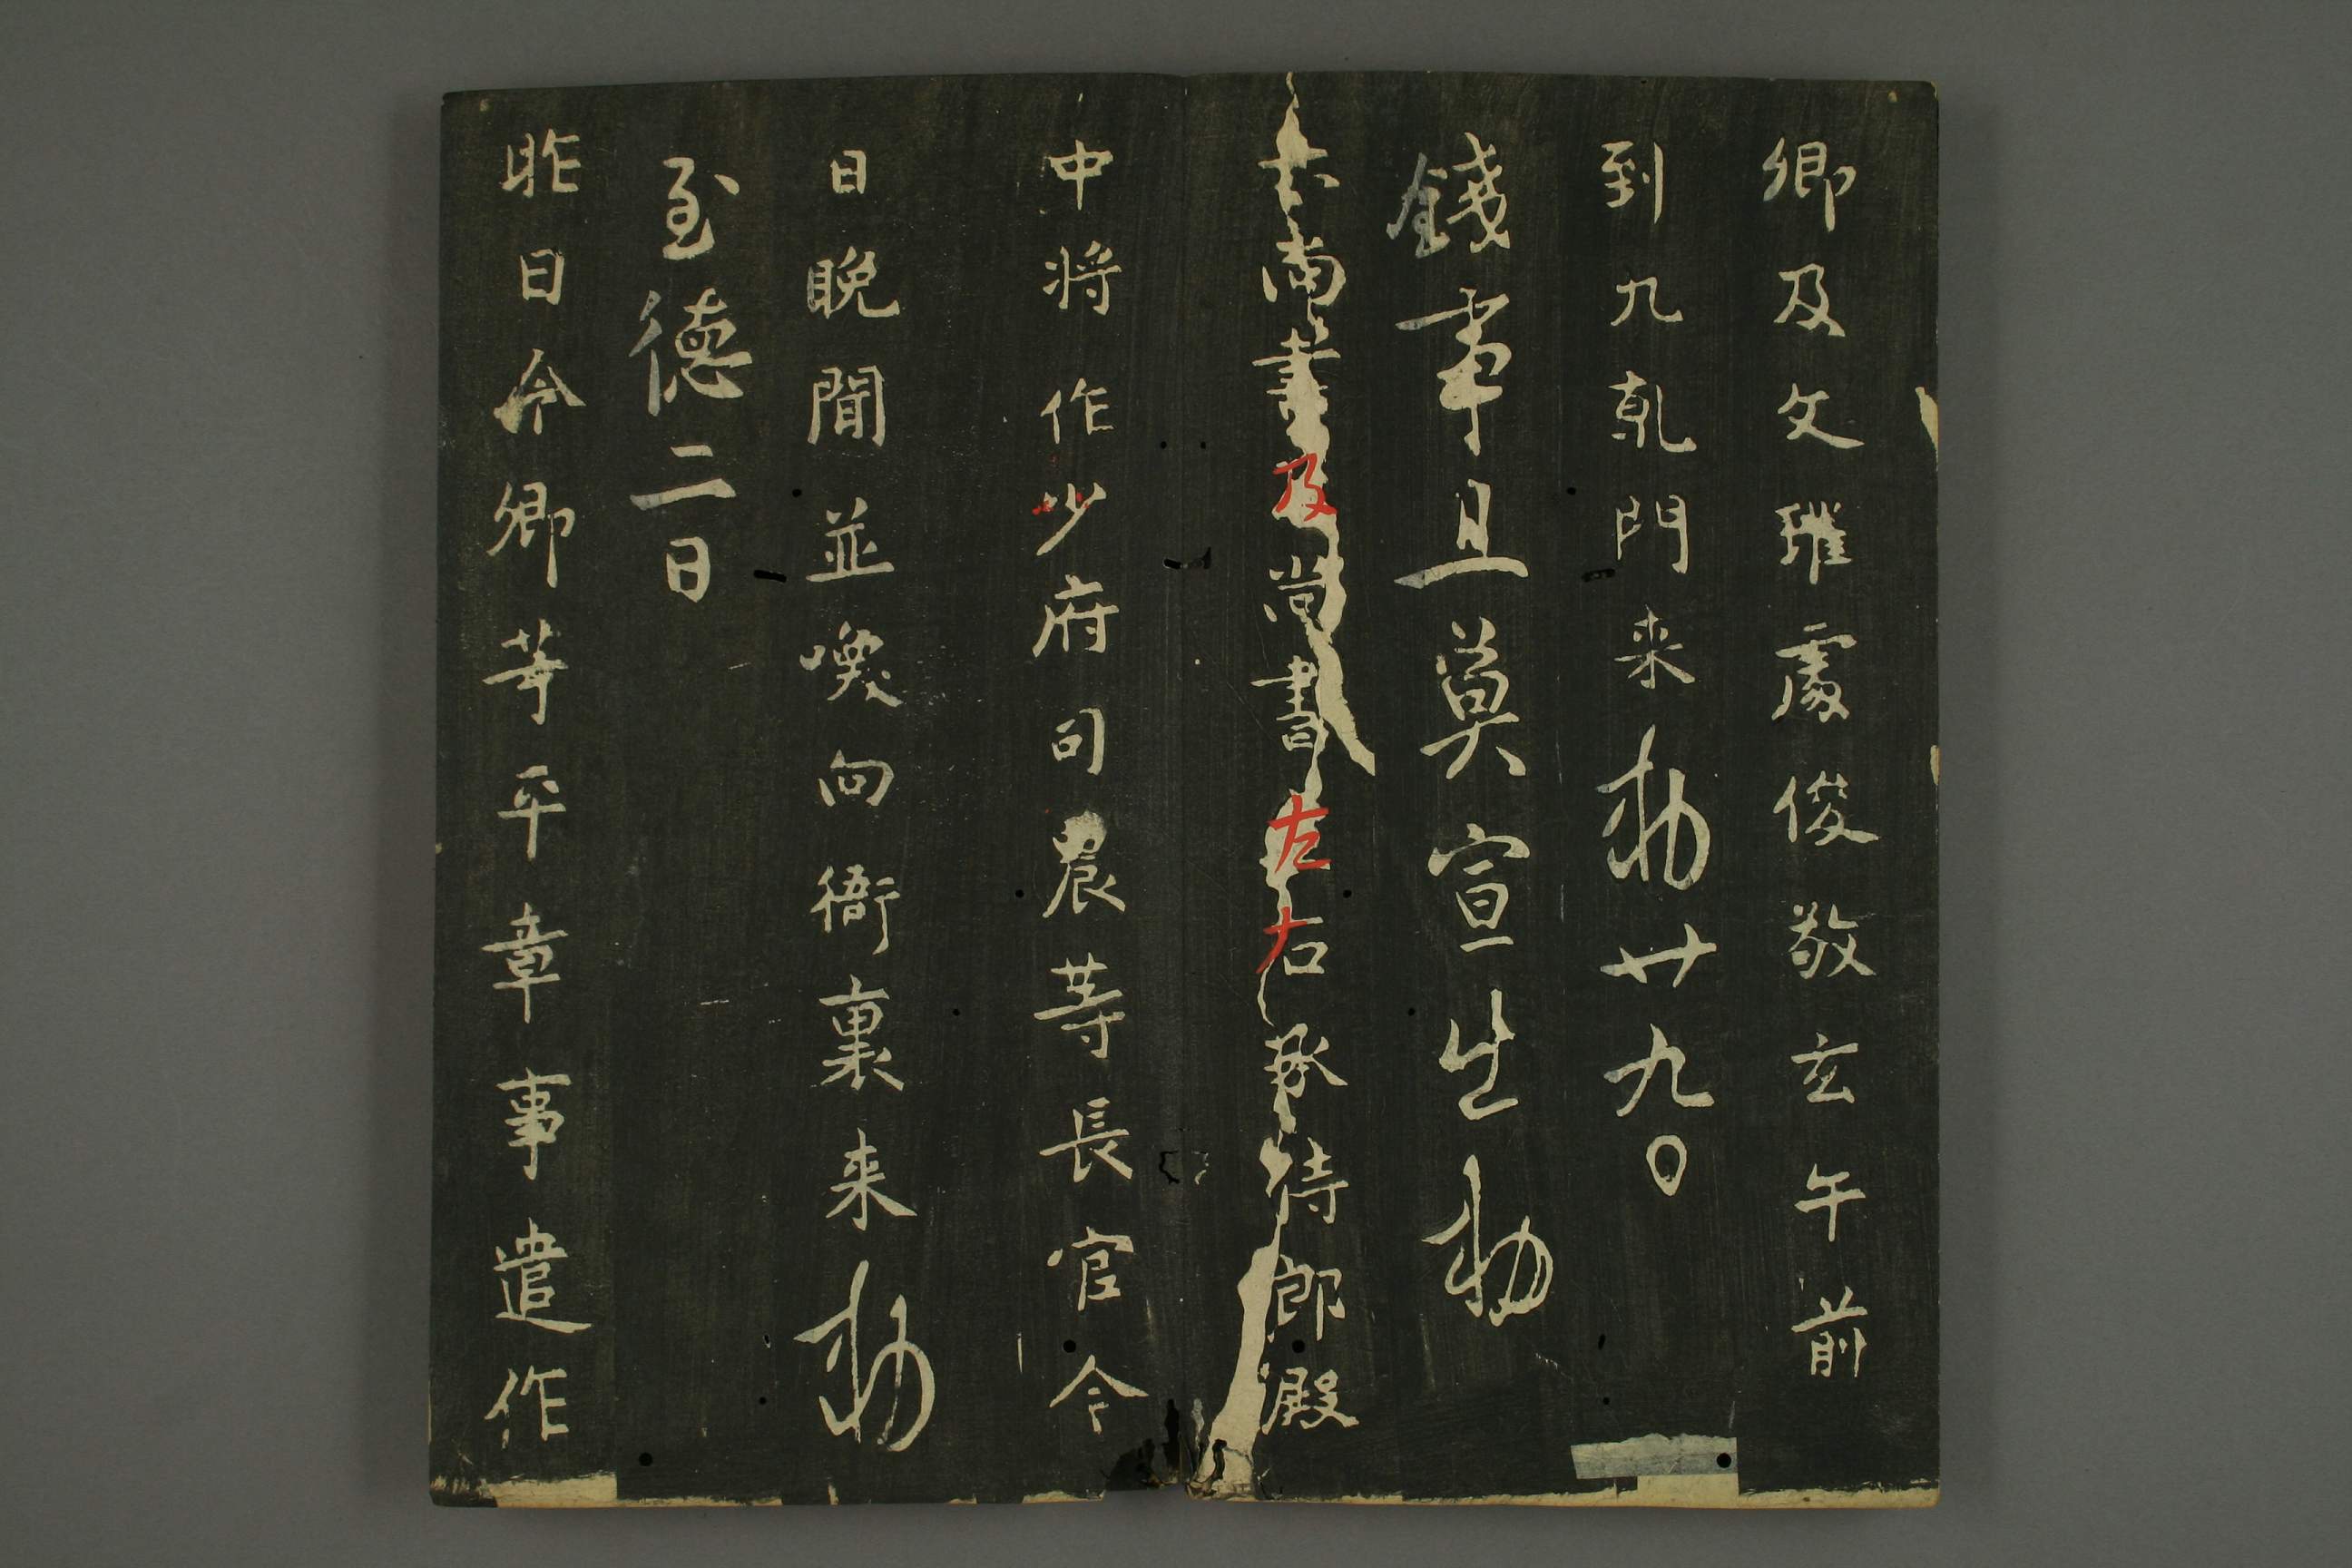 卿及文瓘處俊敬玄午前
到九乾門来勅廿九〇
錢事且莫宣出勅
六尚書及尚書左右承侍郎殿
中将作少府司農等長官今
日晚間並喚向衙裏来勅
至德二日
昨日令卿等平章事遣作